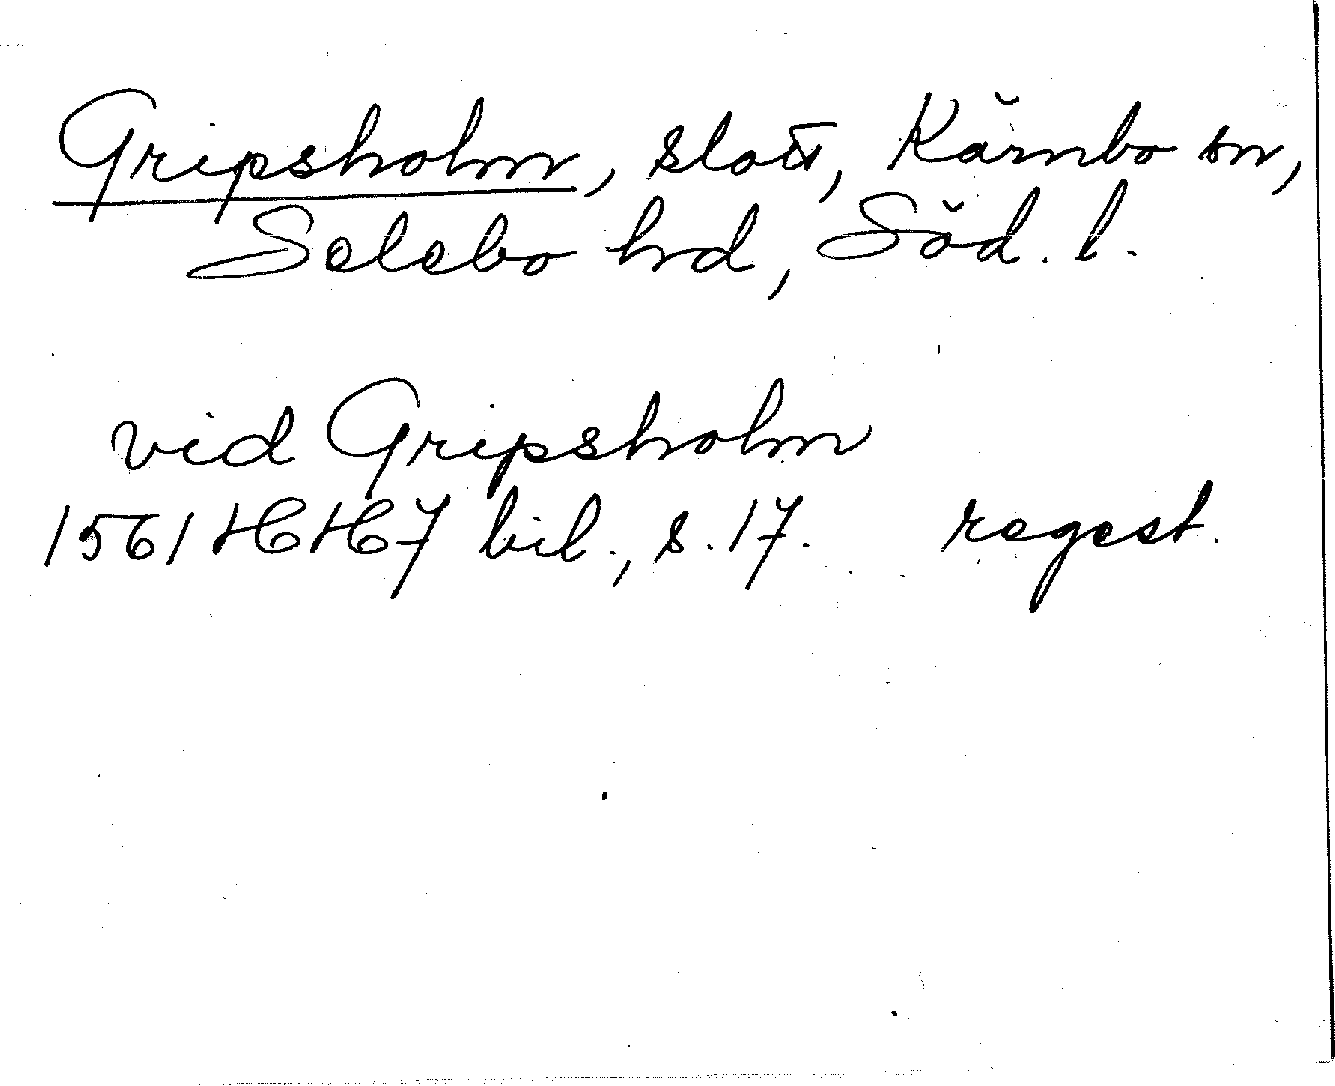 Gripsholm, slott, Kärnbo sn,
Selebo hd, Söd. l.
vid Gripsholm
1561 HH7 bil., s. 17. regest.